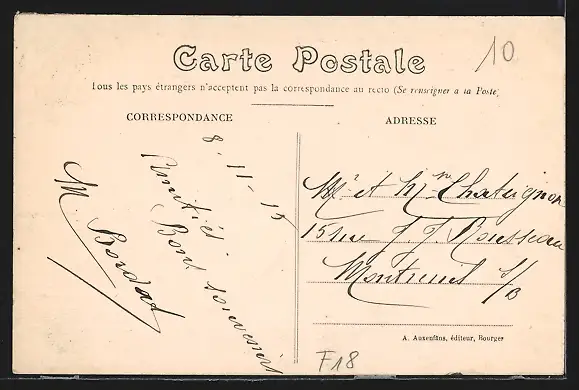 Carte Postale
10
Tous les pays étrangers n'acceptent pas la correspondance au recto (Se renseigner a la Poste)
CORRESPONDANCE
ADRESSE
8-11-15
Amitiés.
Bons souvenirs
M. Bondat
Mr et Mme Chataignon
15 rue J. J. Rousseau
Montreuil s/B
A. Auxenfans, éditeur, Bourger
F18